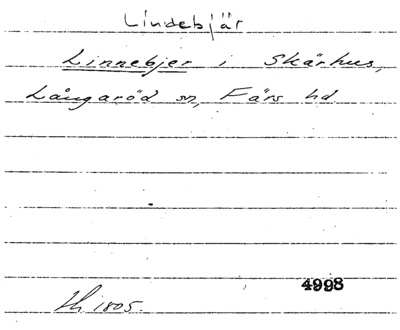 Lindebjär
Linnebjer i Skärhus,
Långaröd sn, Färs hd
4998
1805.